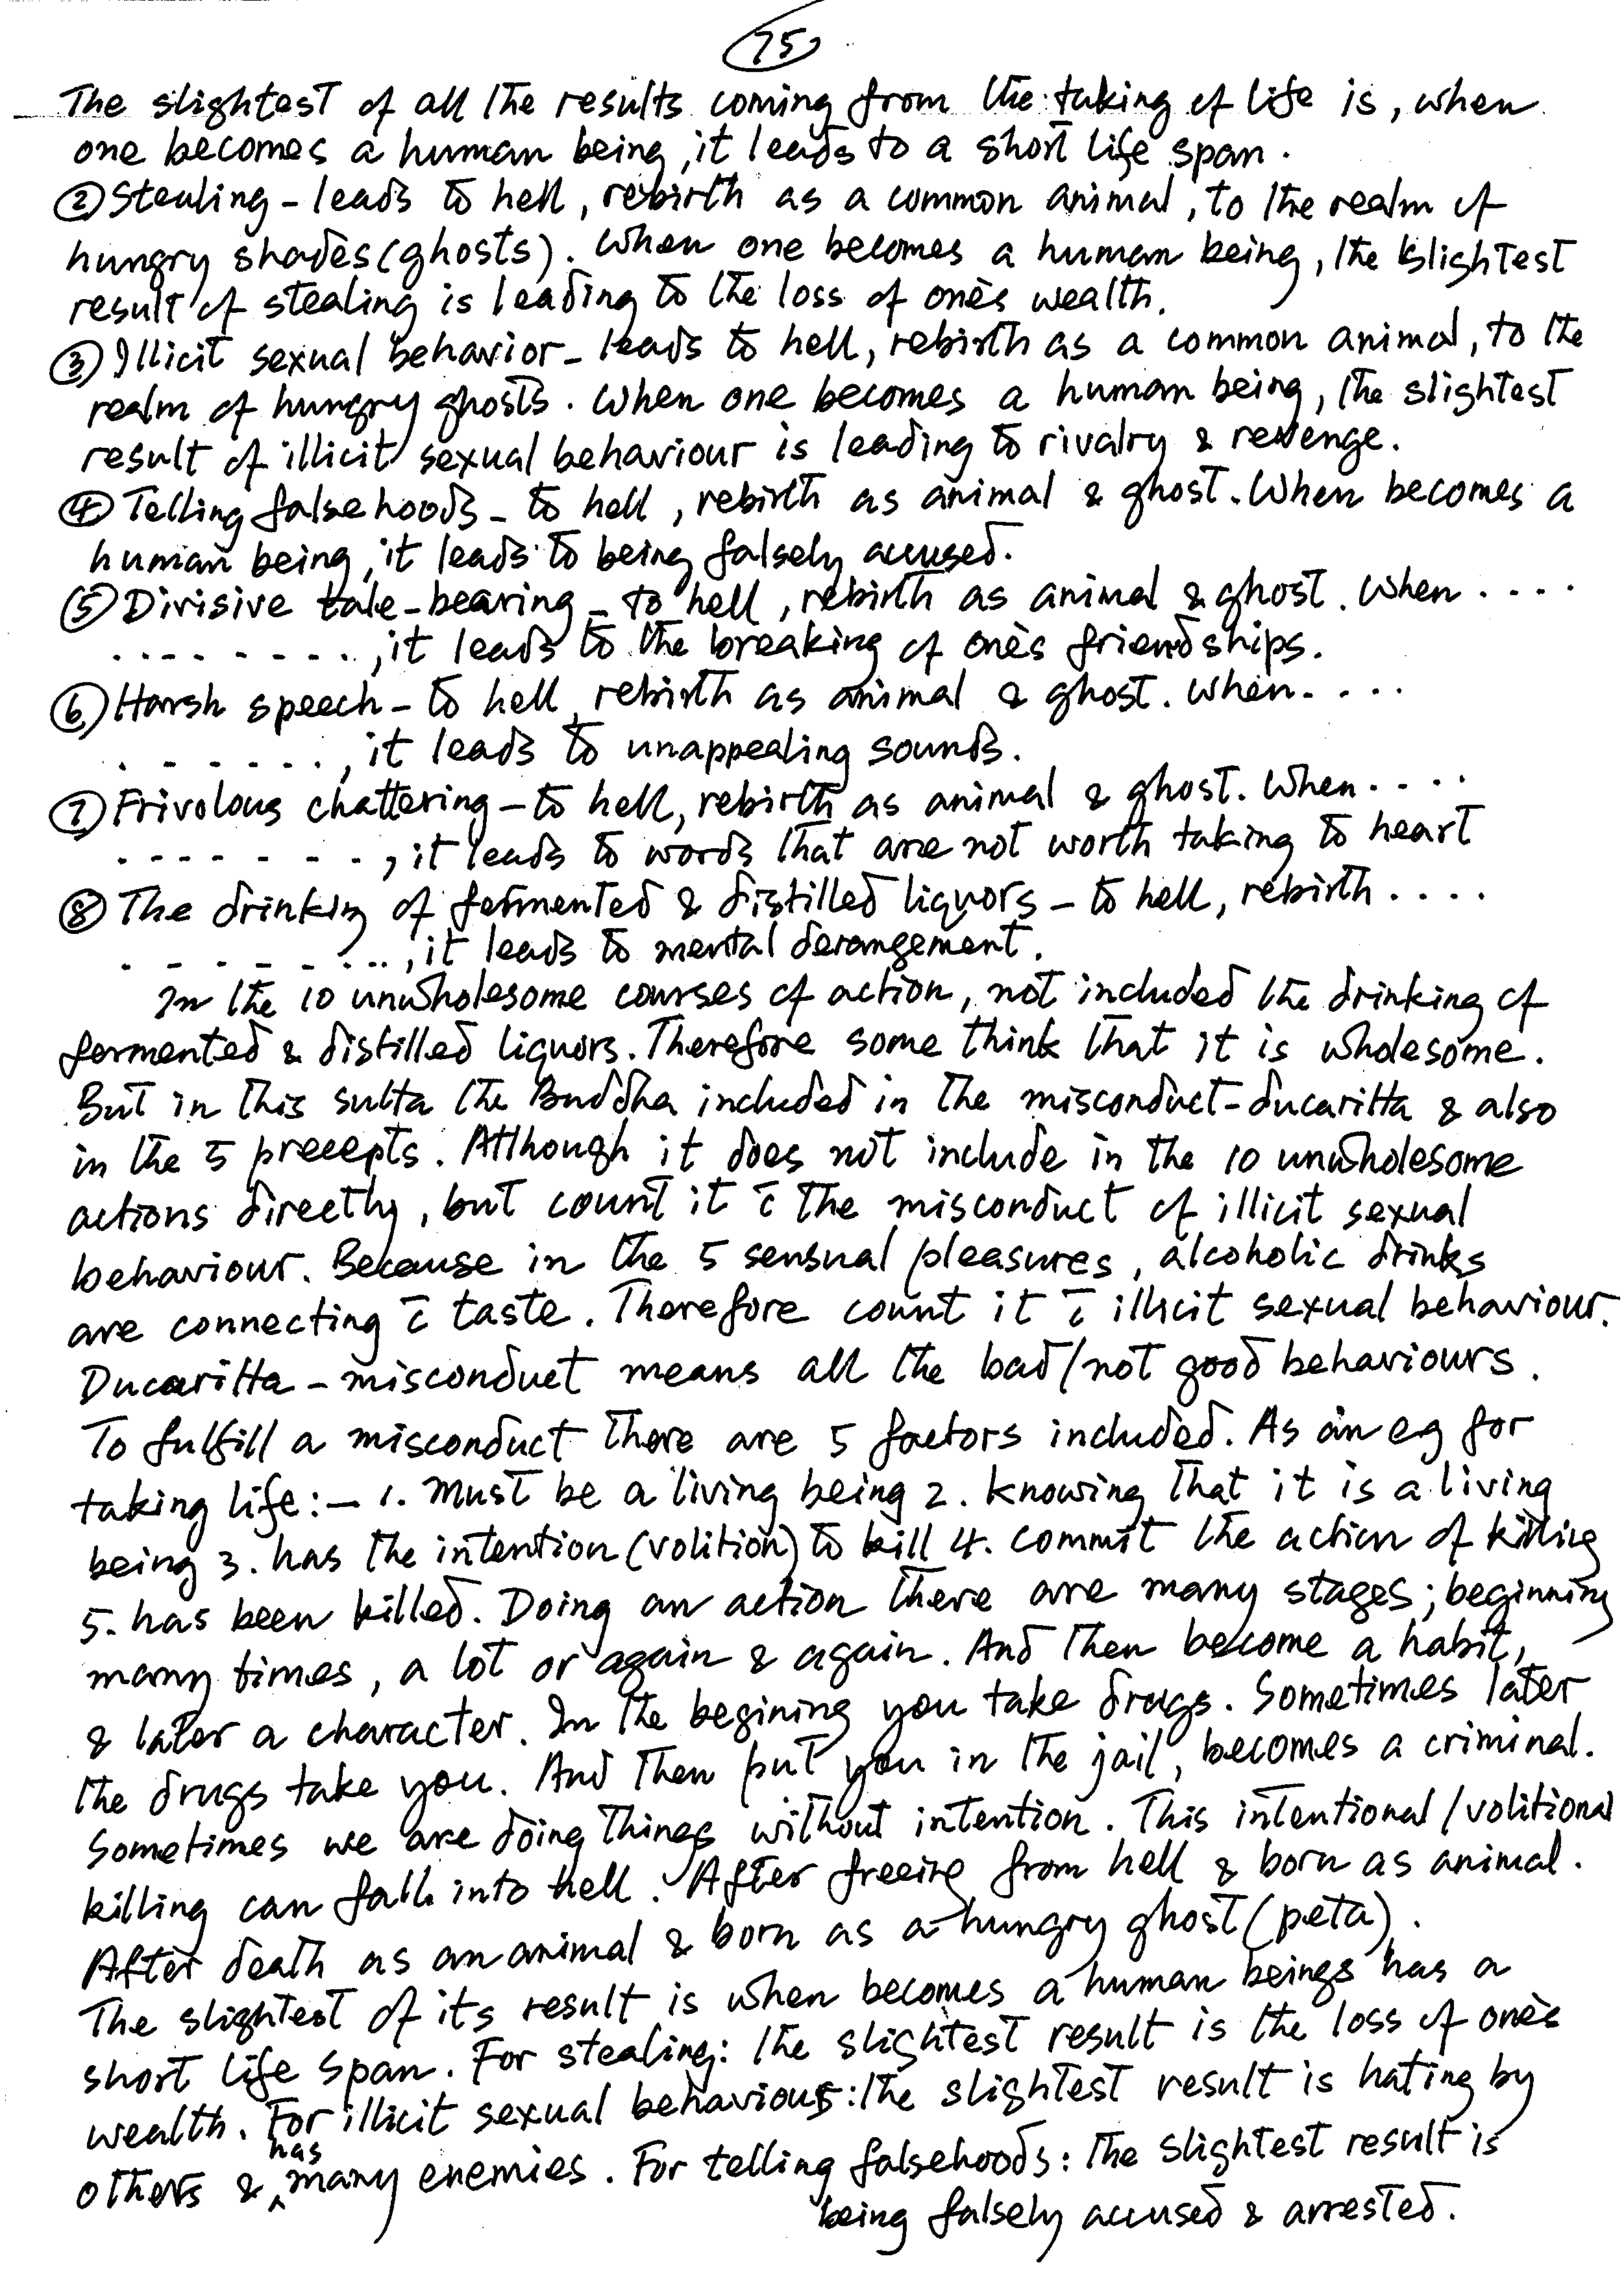 75
The slightest of all the results coming from the taking of life is, when
one becomes a human being, it leads to a short life span.
② Stealing - leads to hell, rebirth as a common animal, to the realm of
hungry shades (ghosts). When one becomes a human being, the slightest
result of stealing is leading to the loss of one's wealth.
③ Illicit sexual behavior - leads to hell, rebirth as a common animal, to the
realm of hungry ghosts. When one becomes a human being, the slightest
result of illicit sexual behaviour is leading to rivalry & revenge.
④ Telling falsehoods - to hell, rebirth as animal & ghost. When becomes a
human being, it leads to being falsely accused.
⑤ Divisive tale-bearing - to hell, rebirth as animal & ghost. When ....
........., it leads to the breaking of one's friendships.
⑥ Harsh speech - to hell, rebirth as animal & ghost. When ....
......., it leads to unappealing sounds.
⑦ Frivolous chattering - to hell, rebirth as animal & ghost. When ....
........, it leads to words that are not worth taking to heart
⑧ The drinking of fermented & distilled liquors - to hell, rebirth ....
........., it leads to mental derangement.
In the 10 unwholesome courses of action, not included the drinking of
fermented & distilled liquors. Therefore some think that it is wholesome.
But in this sutta the Buddha included in the misconduct - ducaritta & also
in the 5 precepts. Although it does not include in the 10 unwholesome
actions directly, but count it c̄ the misconduct of illicit sexual
behaviour. Because in the 5 sensual pleasures, alcoholic drinks
are connecting c̄ taste. Therefore count it c̄ illicit sexual behaviour.
Ducaritta - misconduct means all the bad/not good behaviours.
To fulfill a misconduct there are 5 factors included. As an eg for
taking life: - 1. Must be a living being 2. Knowing that it is a living
being 3. has the intention (volition) to kill 4. commit the action of killing
5. has been killed. Doing an action there are many stages; beginning
many times, a lot or again & again. And then become a habit,
& later a character. In the begining you take drugs. Sometimes later
the drugs take you. And then put you in the jail, becomes a criminal.
Sometimes we are doing things without intention. This intentional/volitional
killing can fall into hell. After freeing from hell & born as animal.
After death as an animal & born as a hungry ghost (peta).
The slightest of its result is when becomes a human beings has a
short life span. For stealing: the slightest result is the loss of one's
wealth. For illicit sexual behaviours: the slightest result is hating by
others & has many enemies. For telling falsehoods: the slightest result is
being falsely accused & arrested.